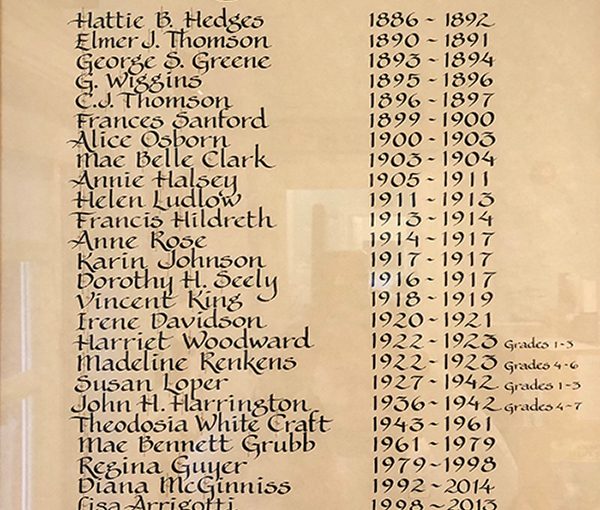 Hattie B. Hedges 1886 ~ 1892
Elmer J. Thomson 1890 ~ 1891
George S. Greene 1893 ~ 1894
G. Wiggins 1895 ~ 1896
C.J. Thomson 1896 ~ 1897
Frances Sanford 1899 ~ 1900
Alice Osborn 1900 ~ 1903
Mae Belle Clark 1903 ~ 1904
Annie Halsey 1905 ~ 1911
Helen Ludlow 1911 ~ 1913
Francis Hildreth 1913 ~ 1914
Anne Rose 1914 ~ 1917
Karin Johnson 1917 ~ 1917
Dorothy H. Seely 1916 ~ 1917
Vincent King 1918 ~ 1919
Irene Davidson 1920 ~ 1921
Harriet Woodward 1922 ~ 1923 Grades 1-3
Madeline Renkens 1922 ~ 1923 Grades 4-6
Susan Loper 1927 ~ 1942 Grades 1-3
John H. Harrington 1936 ~ 1942 Grades 4-7
Theodosia White Craft 1943 ~ 1961
Mae Bennett Grubb 1961 ~ 1979
Regina Guyer 1979 ~ 1998
Diana McGinniss 1992 ~ 2014
Lisa Arrigotti 1998 ~ 2013